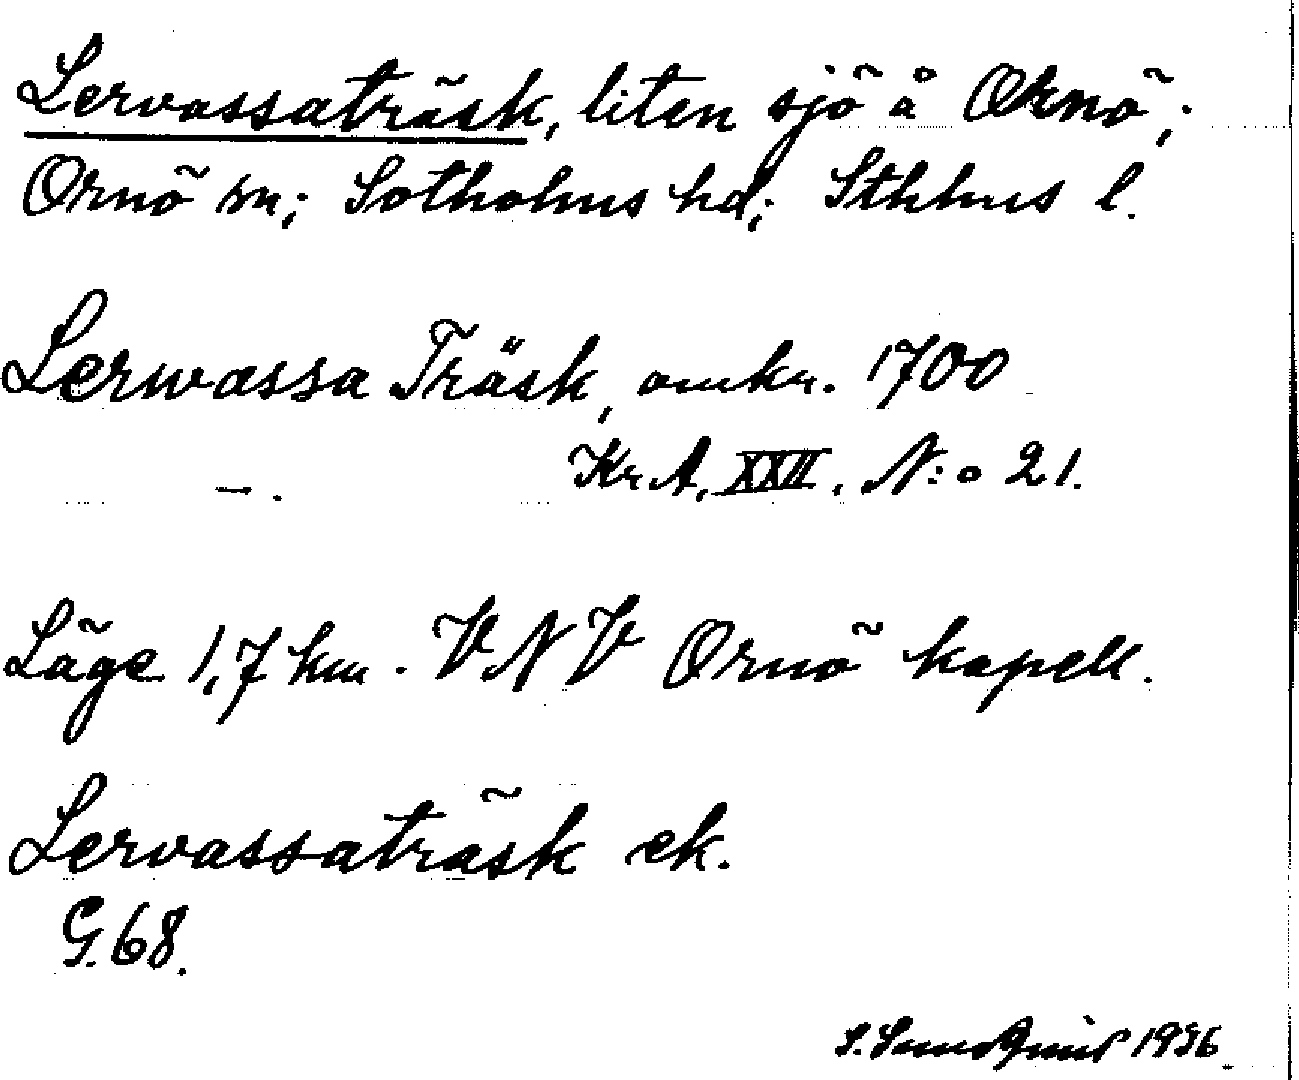 Lervassaträsk, liten sjö å Ornö;
Ornö sn; Sotholms hd; Sthlms l.
Lerwassa Träsk, omkr. 1700
— . Kr. A. XXII. N:o 21.
Läge 1,7 km. VNV Ornö kapell.
Lervassaträsk ek.
G. 68.
S. Sundquist 1936